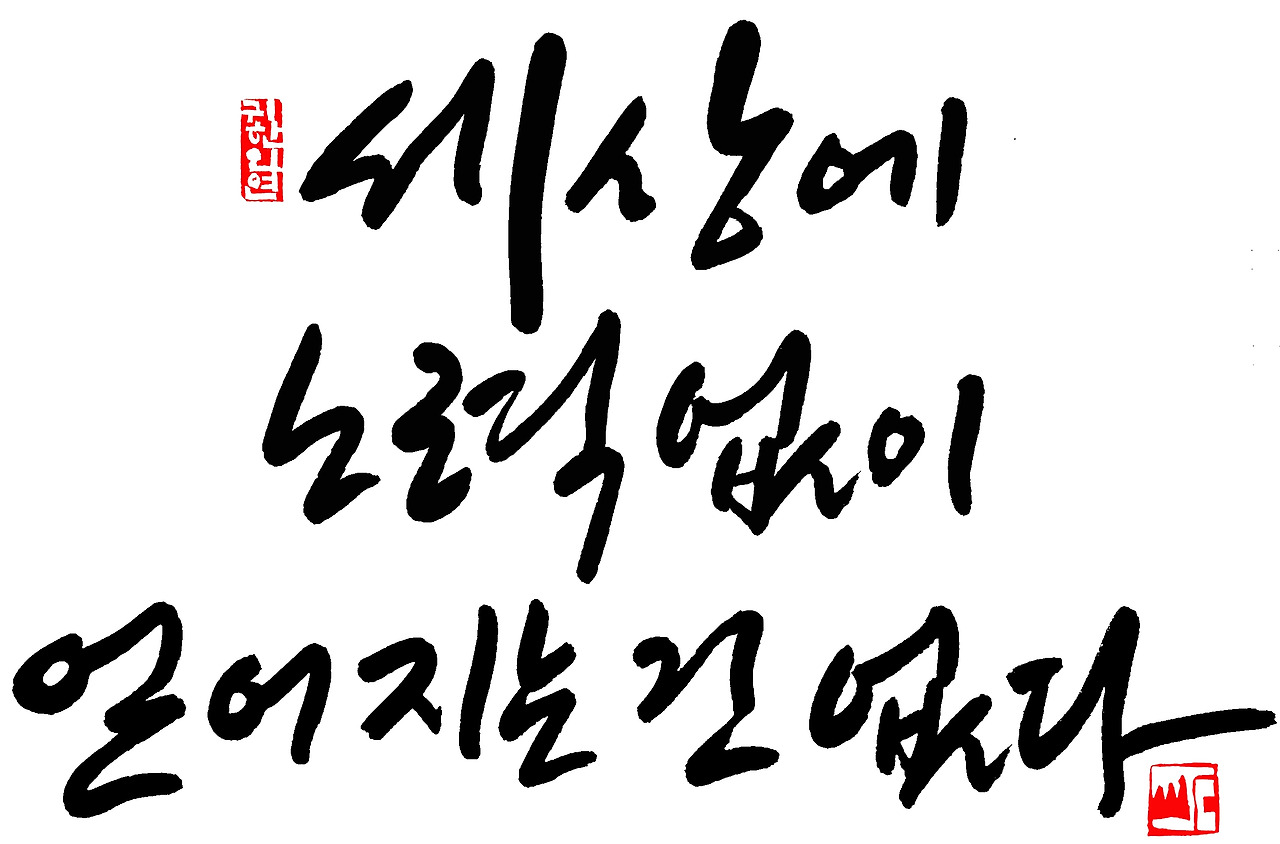 세상에
노력 없이
얻어지는 건 없다